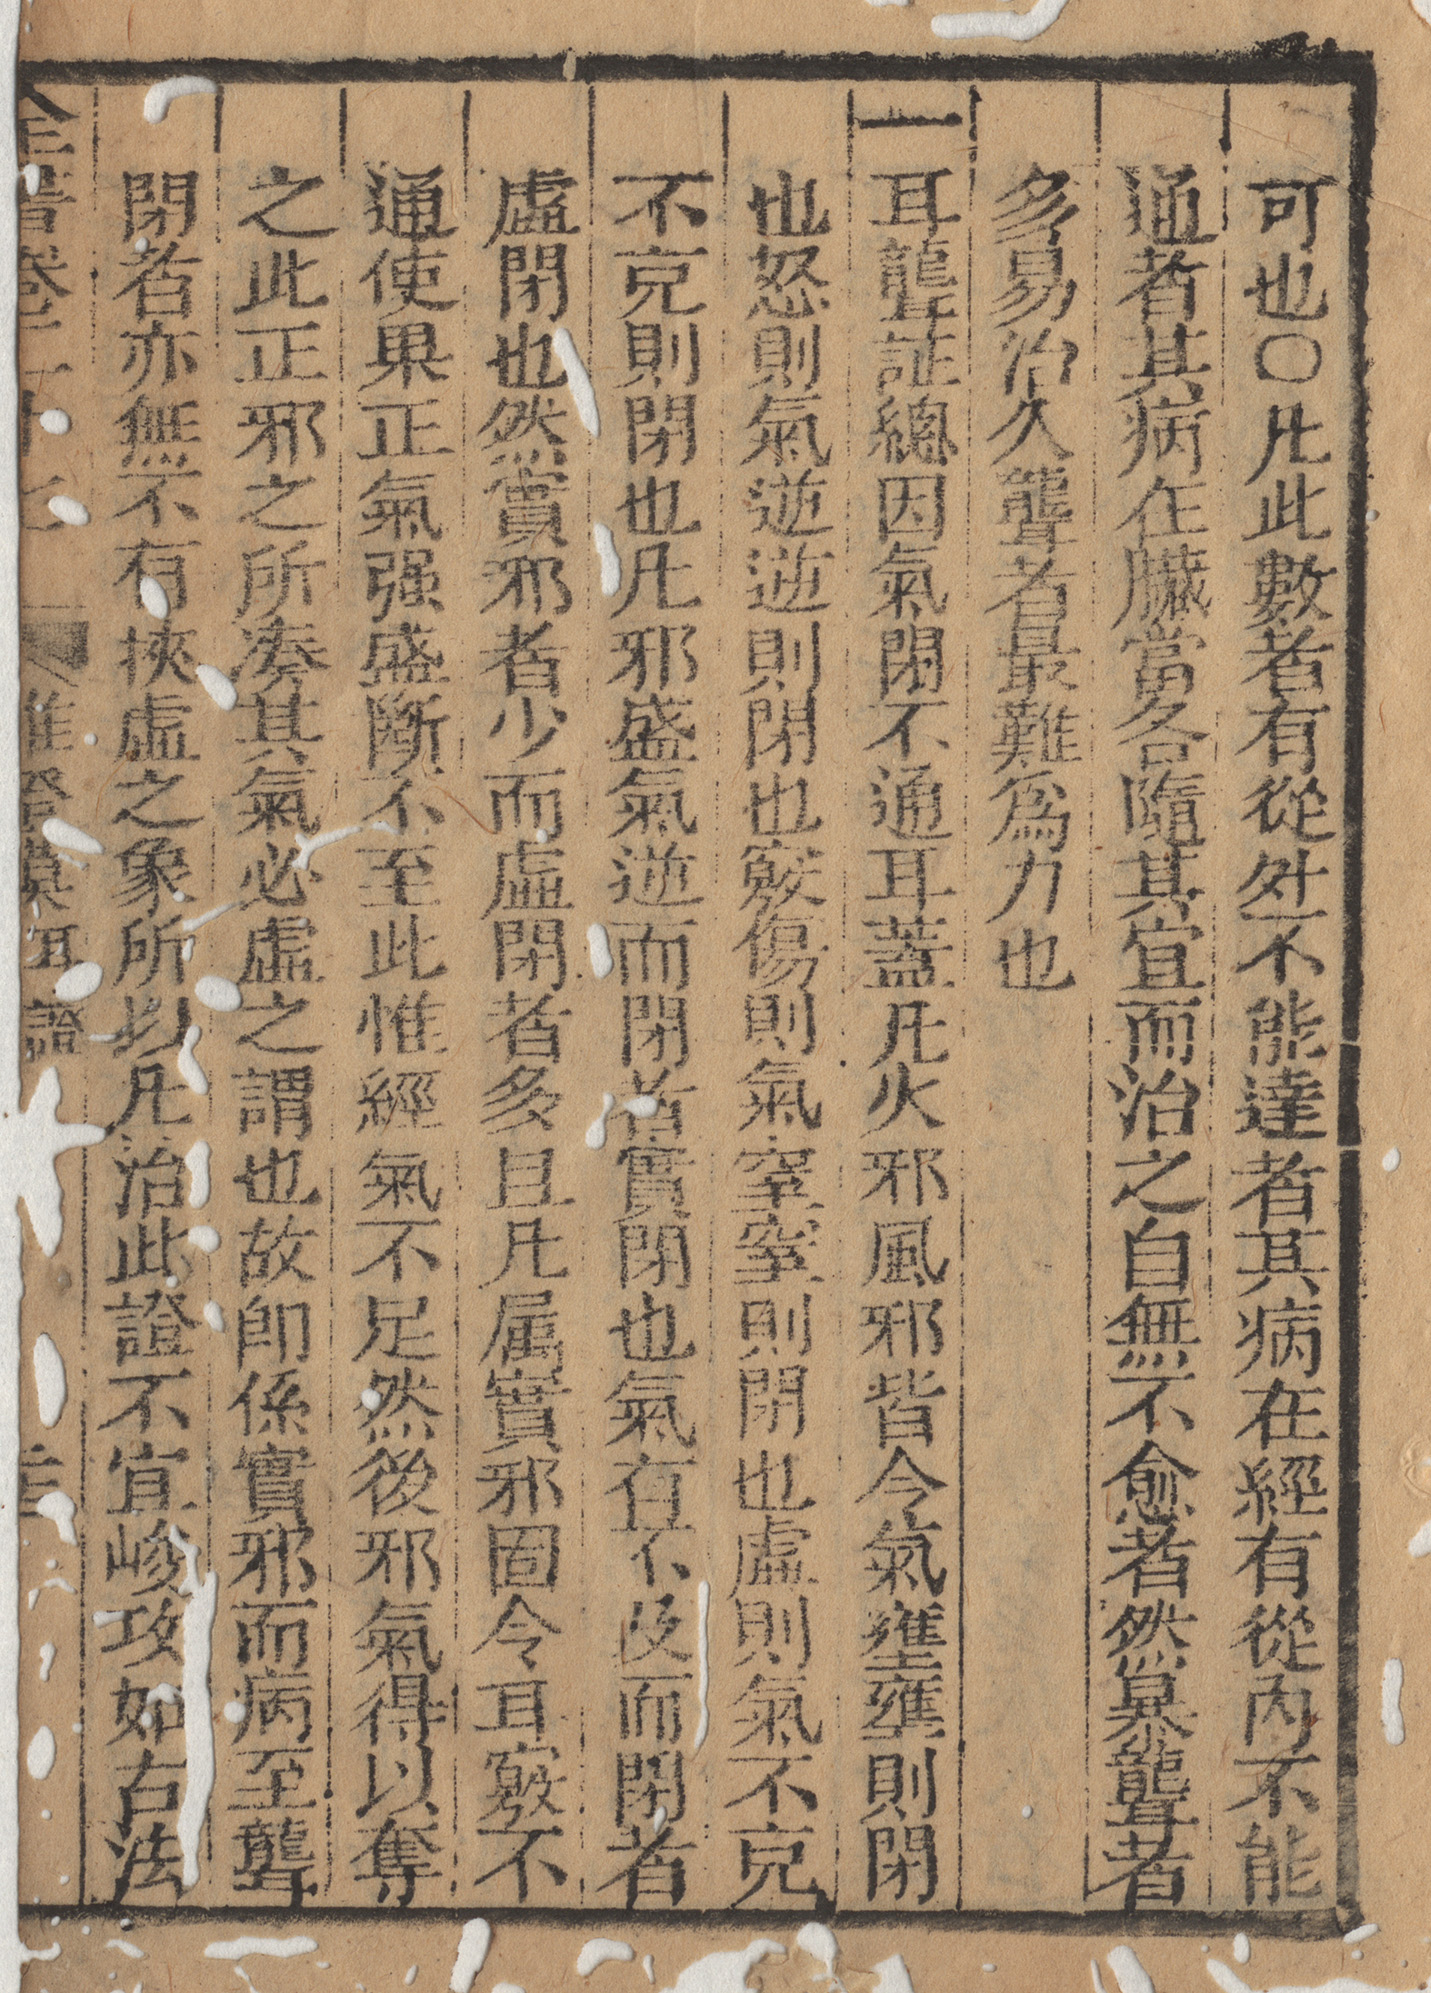 可也〇凡此數者有從外不能達者其病在經有從內不能
通者其病在臟當各隨其宜而治之自無不愈者然暴聾者
多易治久聾者最難爲力也
一耳聾証總因氣閉不通耳蓋凡火邪風邪皆令氣壅壅則閉
也怒則氣逆逆則閉也竅傷則氣窒窒則閉也虛則氣不充
不充則閉也凡邪盛氣逆而閉者實閉也氣有不及而閉者
虛閉也然實邪者少而虛閉者多且凡属實邪固令耳竅不
通使果正氣强盛斷不至此惟經氣不足然後邪氣得以奪
之此正邪之所凑其氣必虛之謂也故即係實邪而病至聾
閉者亦無不有挾虛之象所以凡治此證不宜峻攻如古法
全書卷二十七 雜證謨 耳證